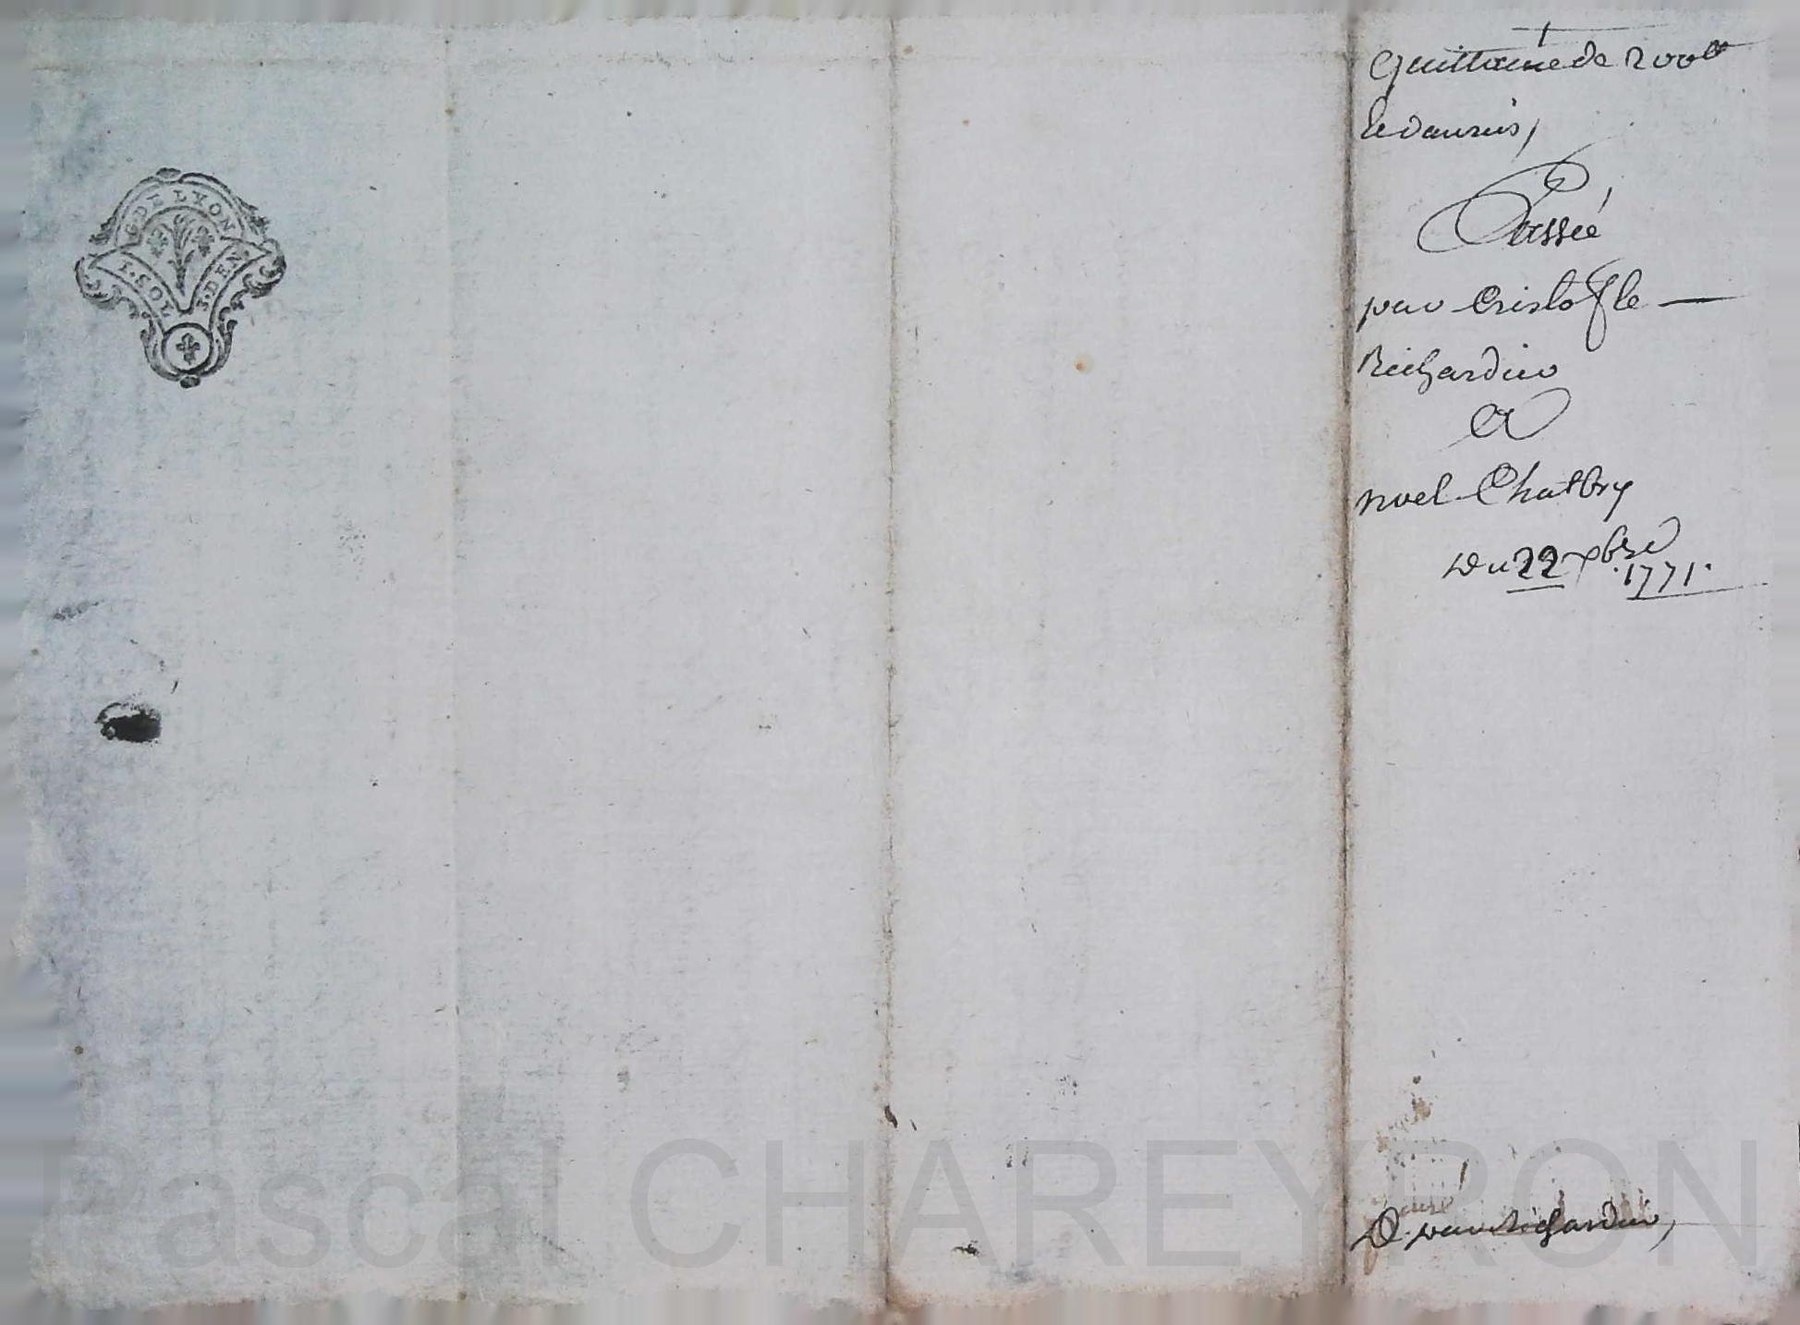 G. DE LYON
1. SOL 8. DEN.
Quittance de 200 ₶
Passée
par Cristofle
Richardin
A
noel Chatbry
Du 22 xbre 1771.
D. par Richardin,
Pascal CHAREYRON